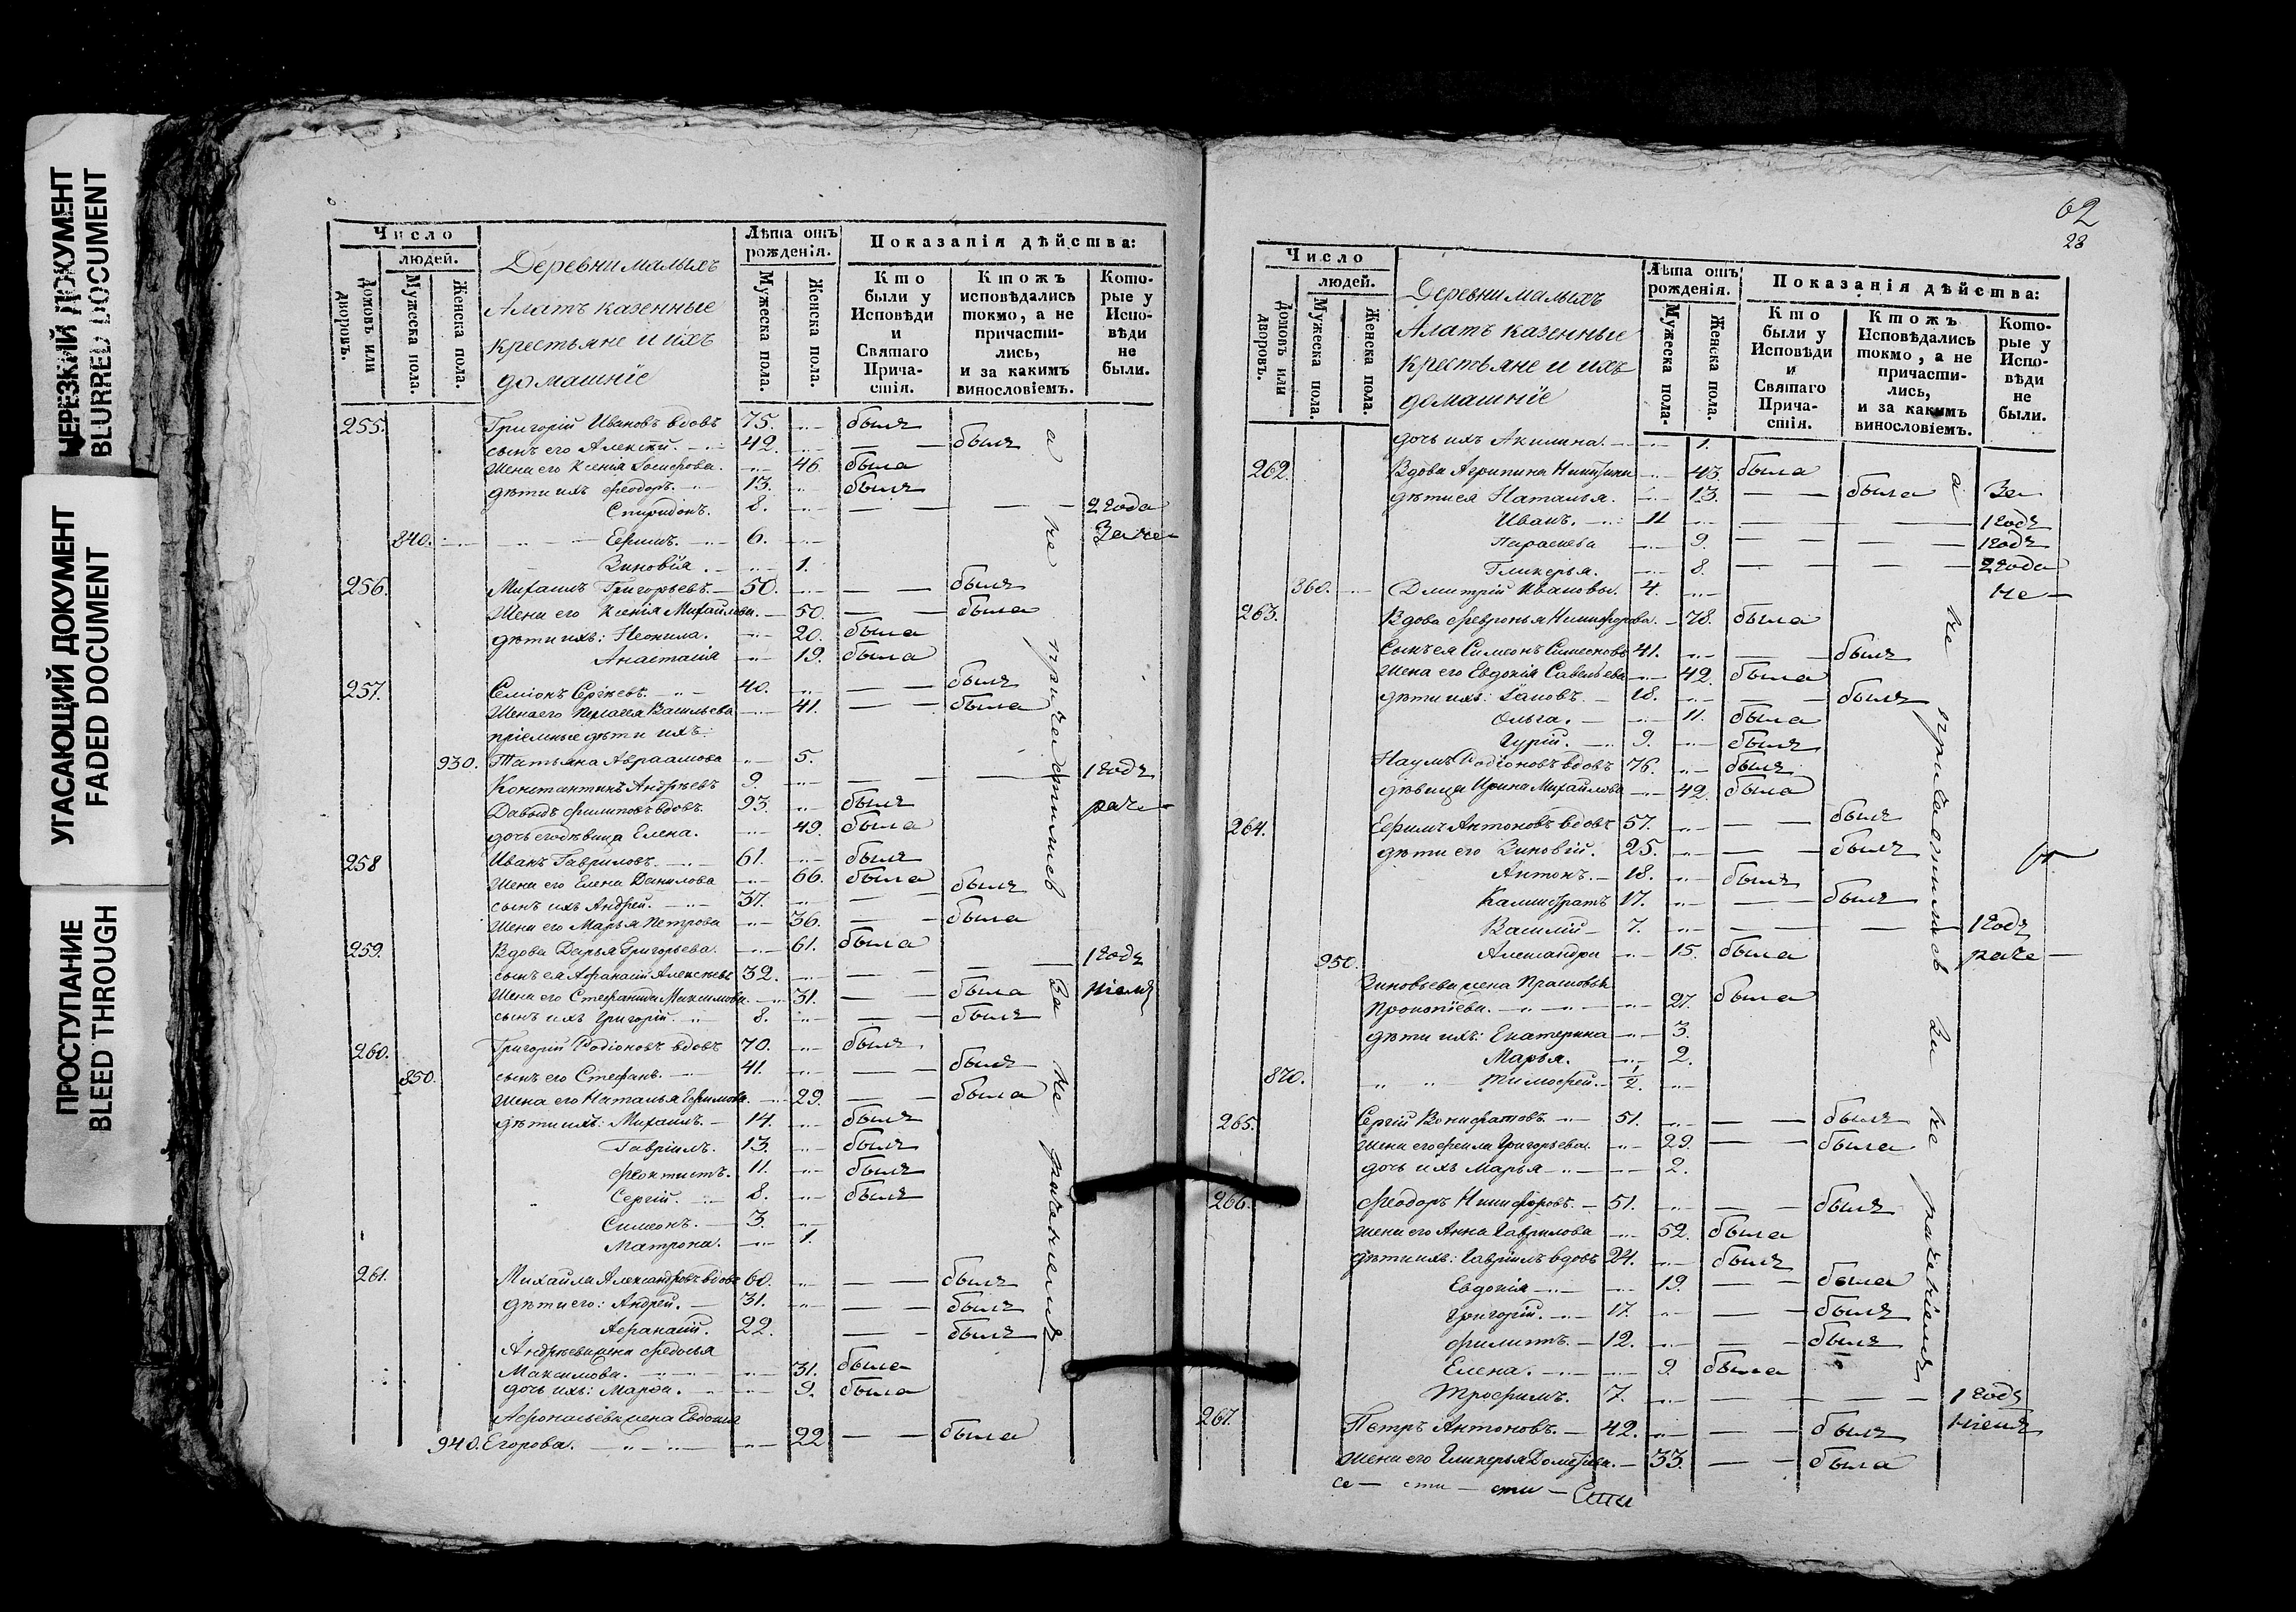 ЧЕРЕЗКИЙ ДОКУМЕНТ
BLURRED DOCUMENT
УГАСАЮЩИЙ ДОКУМЕНТ
FADED DOCUMENT
ПРОСТУПАНИЕ
BLEED THROUGH
Число
людей.
Домовъ или дворовъ.
Мужеска пола.
Женска пола.
Деревни малыхъ
Алатъ казенные
крестьяне и ихъ
домашнiе
Лѣта отъ рожденiя.
Мужеска пола.
Женска пола.
Показанiя дѣйства:
Кто были у Исповѣди и Святаго Прича-стiя.
Ктожъ исповѣдались токмо, а не причасти-лись, и за какимъ винословiемъ.
Кото-рые у Испо-вѣди не были.
255. Григорiй Ивановъ вдовъ 75. былъ
сынъ его Алексѣй. 42. былъ
жена его Ксенiя Iосифова. 46. была
дѣти ихъ Феодоръ. 13. былъ
Спиридонъ. 8. 2 года
840. Ефимъ. 6. За не-
Зиновiя. 1.
256. Михаилъ Григорьевъ. 50. былъ
Жена его Ксенiя Михайлова. 50. была
дѣти ихъ: Неонила. 20. была
Анастасiя 19. была
257. Семiонъ Сергѣевъ. 40. былъ
Жена его Пелагея Васильева 41. была
прiемные дѣти ихъ:
930. Татьяна Авраамова 5.
Константинъ Андрѣевъ 9. 1 годъ
Давыдъ Филиповъ вдовъ. 93. былъ раче-
дочь его дѣвица Елена. 49. была
258 Иванъ Гавриловъ. 61. былъ
Жена его Елена Данилова 66. была
сынъ ихъ Андрей. 37. былъ
Жена его Марья Петрова 36. была
259. Вдова Дарья Григорьева. 61. была
сынъ ея Афанасiй Алексѣевъ 32. 1 годъ
Жена его Стефанида Максимова. 31. была нiемъ
сынъ ихъ Григорiй. 8. былъ
260. Григорiй Родiоновъ вдовъ 70. былъ
850. сынъ его Стефанъ. 41. былъ
Жена его Наталья Ефимова. 29. была
дѣти ихъ: Михаилъ. 14. былъ
Гаврiилъ. 13. былъ
Феоктистъ. 11. былъ
Сергiй. 8. былъ
Симеонъ. 3.
Матрона. 1.
261. Михайла Александровъ вдовъ 60. былъ
дѣти его: Андрей. 31. былъ
Афанасiй. 22. былъ
Андрѣева жена Федосья
Максимова. 31. была
дочь ихъ: Марфа. 9. была
Афонасьева жена Евдокiя
940. Егорова. 22 была
а не причастились За не раченiемъ
62
28
Число
людей.
Домовъ или дворовъ.
Мужеска пола.
Женска пола.
Деревни малыхъ
Алатъ казенные
крестьяне и ихъ
домашнiе
Лѣта отъ рожденiя.
Мужеска пола.
Женска пола.
Показанiя дѣйства:
Кто были у Исповѣди и Святаго Прича-стiя.
Ктожъ Исповѣдались токмо, а не причасти-лись, и за какимъ винословiемъ.
Кото-рые у Испо-вѣди не были.
дочь ихъ Акилина. 1.
262. Вдова Агрипина Никитина 43. была
дѣти ея Наталья. 13. была За
Иванъ. 11 1 годъ
Параскева 9. 1 годъ
Гликерья. 8. 2 года
860. Дмитрiй Ивановы. 4. не-
263. Вдова Февронья Никифорова. 78. была
Сынъ ея Симеонъ Симеоновъ 41. былъ
Жена его Евдокiя Савельева 42. была
дѣти ихъ: Iаковъ. 18. былъ
Ольга. 11. была
Гурiй. 9. былъ
Наумъ Родiоновъ вдовъ 76. былъ
дѣвица Ирина Михайлова 42. была
264. Ефимъ Антоновъ вдовъ 57. былъ
дѣти его Зиновiй. 25. былъ
Антонъ. 18. былъ
Калистратъ 17. былъ
Василiй 7. 1 годъ
950. Александра 15. была раче-
Зиновьева жена Прасковья
Прокопiева. 27. была
дѣти ихъ: Екатерина 3.
Марья. 2.
870. Тимофей. 1/2.
265. Сергiй Вонифатовъ. 51. былъ
Жена его Фекла Григорьева. 29. была
дочь ихъ Марья 2.
266. Феодоръ Никифоровъ. 51. былъ
жена его Анна Гаврилова 52. была
дѣти ихъ: Гаврiилъ вдовъ 24. былъ
Евдокiя 19. была
Григорiй. 17. былъ
Филиппъ. 12. былъ
Елена. 9. была
Трофимъ. 7. 1 годъ
267. Петръ Антоновъ. 42. былъ нiемъ
Жена его Гликерья 33. была
а не причастились За не раченiемъ